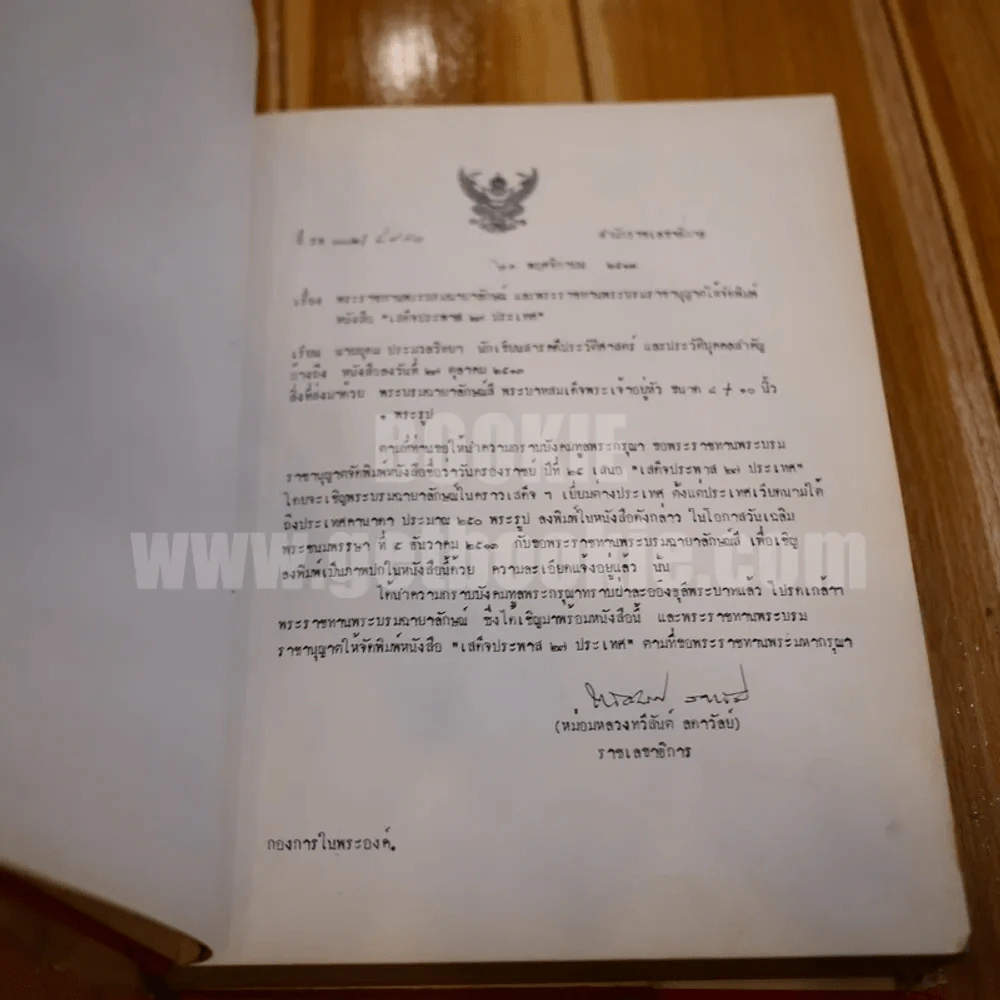 ที่ รล
สำนักราชเลขาธิการ
๒๓ พฤศจิกายน ๒๕๑๓
เรื่อง พระราชทานพระบรมฉายาลักษณ์ และพระราชทานพระบรมราชานุญาตให้จัดพิมพ์
หนังสือ "เสด็จประพาส ๒๗ ประเทศ"
เรียน นายอุดม ประมวลวิทยา นักเขียนสารคดีประวัติศาสตร์ และประวัติบุคคลสำคัญ
อ้างถึง หนังสือลงวันที่ ๒๗ ตุลาคม ๒๕๑๓
สิ่งที่ส่งมาด้วย พระบรมฉายาลักษณ์สี พระบาทสมเด็จพระเจ้าอยู่หัว ขนาด ๘ × ๑๐ นิ้ว
๑ พระรูป
BOOKIE
ตามที่ท่านขอให้นำความกราบบังคมทูลพระกรุณา ขอพระราชทานพระบรม
ราชานุญาตจัดพิมพ์หนังสือชื่อว่าวันครองราชย์ ปีที่ ๒๕ เสนอ "เสด็จประพาส ๒๗ ประเทศ"
โดยจะเชิญพระบรมฉายาลักษณ์ในคราวเสด็จ ฯ เยี่ยมต่างประเทศ ตั้งแต่ประเทศเวียดนามใต้
ถึงประเทศคานาดา ประมาณ ๒๕๐ พระรูป ลงพิมพ์ในหนังสือดังกล่าว ในโอกาสวันเฉลิม
พระชนมพรรษา ที่ ๕ ธันวาคม ๒๕๑๓ กับขอพระราชทานพระบรมฉายาลักษณ์สี เพื่อเชิญ
ลงพิมพ์เป็นภาพปกในหนังสือนี้ด้วย ความละเอียดแจ้งอยู่แล้ว นั้น
ได้นำความกราบบังคมทูลพระกรุณาทราบฝ่าละอองธุลีพระบาทแล้ว โปรดเกล้าฯ
พระราชทานพระบรมฉายาลักษณ์ ซึ่งได้เชิญมาพร้อมหนังสือนี้ และพระราชทานพระบรม
ราชานุญาตให้จัดพิมพ์หนังสือ "เสด็จประพาส ๒๗ ประเทศ" ตามที่ขอพระราชทานพระมหากรุณา
(หม่อมหลวงทวีสันต์ ลดาวัลย์)
ราชเลขาธิการ
กองการในพระองค์.